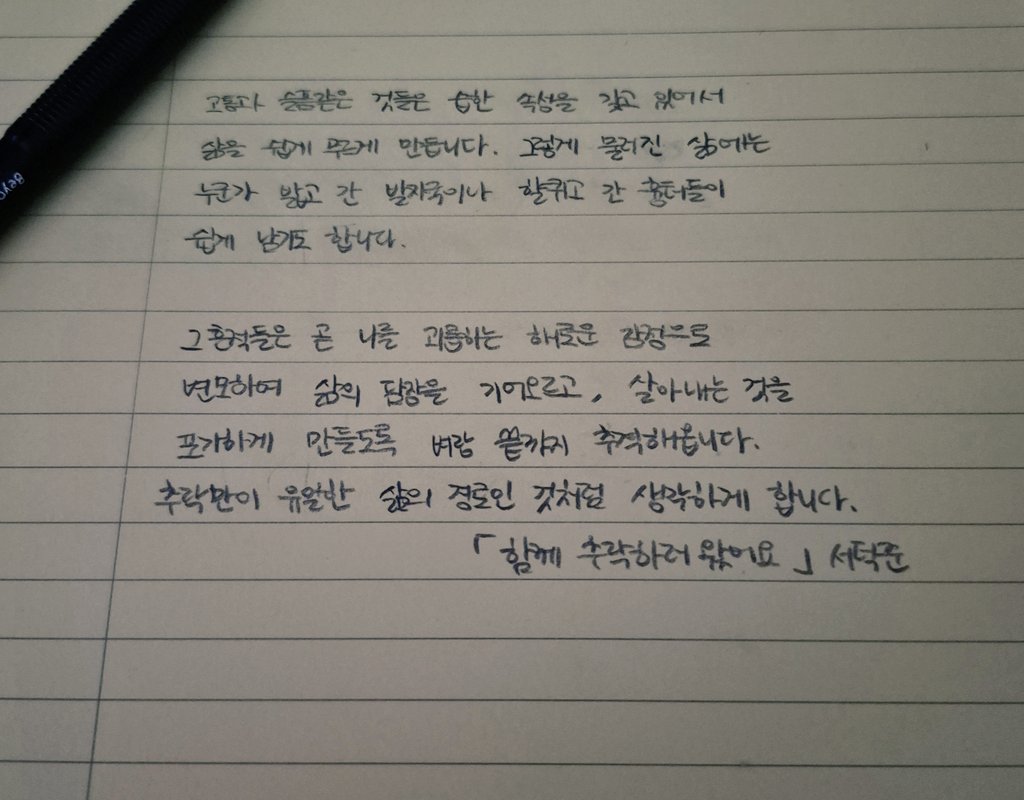 고통과 슬픔같은 것들은 습한 속성을 갖고 있어서
삶을 쉽게 무르게 만듭니다. 그렇게 물러진 삶에는
누군가 밟고 간 발자국이나 할퀴고 간 흉터들이
쉽게 남기도 합니다.
그 흔적들은 곧 나를 괴롭히는 해로운 감정으로
변모하여 삶의 담장을 기어오르고, 살아내는 것을
포기하게 만들도록 벼랑 끝까지 추격해옵니다.
추락만이 유일한 삶의 경로인 것처럼 생각하게 합니다.
「함께 추락하러 왔어요」 서덕준